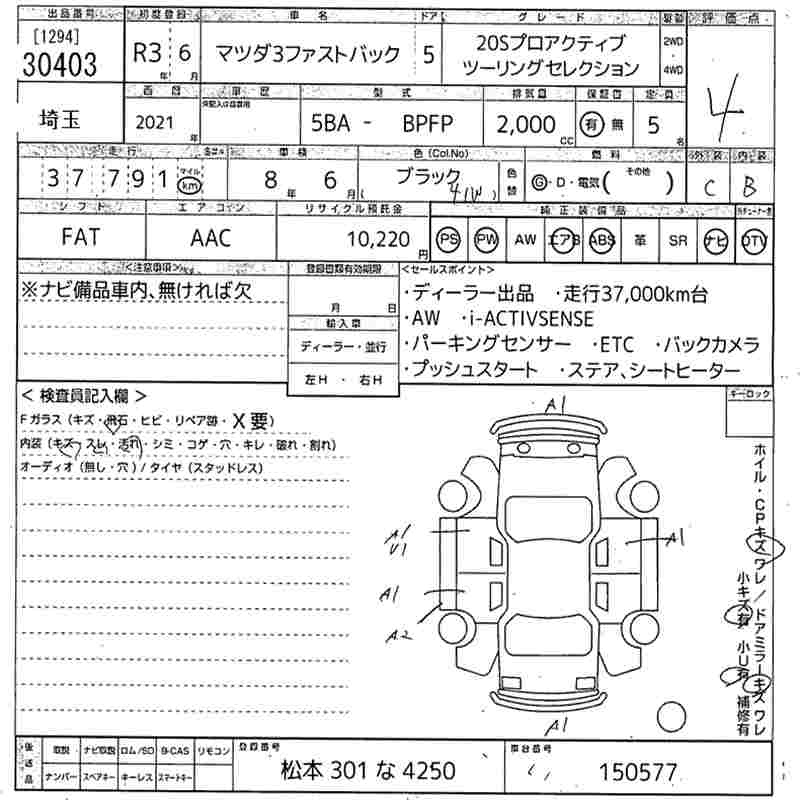 出品番号 初度登録 車名 ドア グレード 駆動 評価点
[1294]
30403 R3年 6月 マツダ3ファストバック 5 20Sプロアクティブ
ツーリングセレクション 2WD・4WD 4
西暦 車歴 型式 排気量 保証書 定員
埼玉 2021年 5BA - BPFP 2,000cc 有 無 5名
走行 車検 色(Col.No) 燃料 外装 内装
37791 マイル km 8年 6月 ブラック 41W 色替 G・D・電気( その他 ) C B
シフト エアコン リサイクル預託金 純正装備品
FAT AAC 10,220円 PS PW AW エアB ABS 革 SR ナビ DTV
<注意事項> 登録書類有効期限 <セールスポイント>
※ナビ備品車内、無ければ欠
月 日
輸入車
ディーラー・並行
左H・右H
・ディーラー出品 ・走行37,000km台
・AW ・i-ACTIVSENSE
・パーキングセンサー ・ETC ・バックカメラ
・プッシュスタート ・ステア、シートヒーター
<検査員記入欄> キーロック
Fガラス(キズ・飛石・ヒビ・リペア跡・X要)
内装(キズ・スレ・汚れ・シミ・コゲ・穴・キレ・破れ・割れ)
オーディオ(無し・穴)/タイヤ(スタッドレス)
A1
A1
U1
A1
A1
A2
A1
ホイル・CPキズワレ/ドアミラーキズワレ
小キズ有 小U有 補修有
後送品 取説 ナビ取説 ロム/SD B-CAS リモコン 登録番号 車台番号
ナンバー スペアキー キーレス スマートキー 松本 301 な 4250 150577